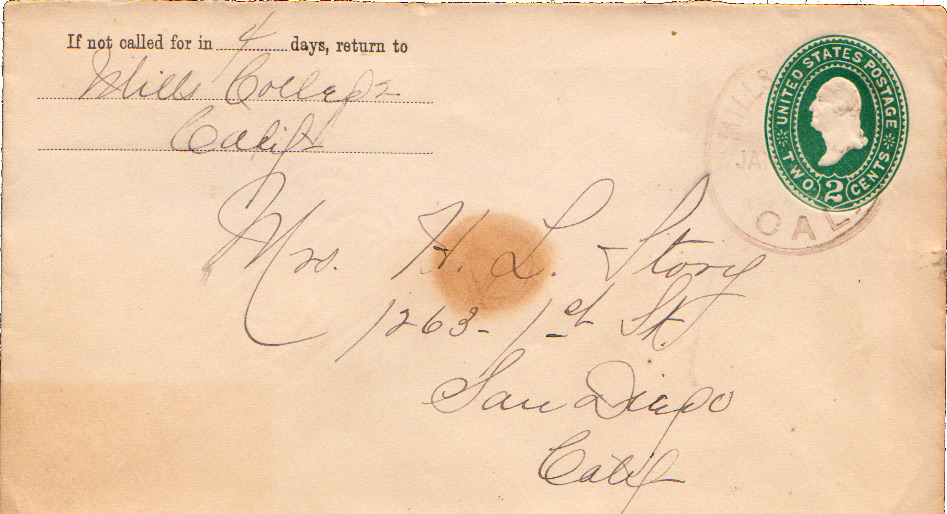 If not called for in 4 days, return to
Mills College
Calif
UNITED STATES POSTAGE
TWO 2 CENTS
MILLS
JA
CAL.
Mrs. H. L. Story
1263 - 1st St.
San Diego
Calif